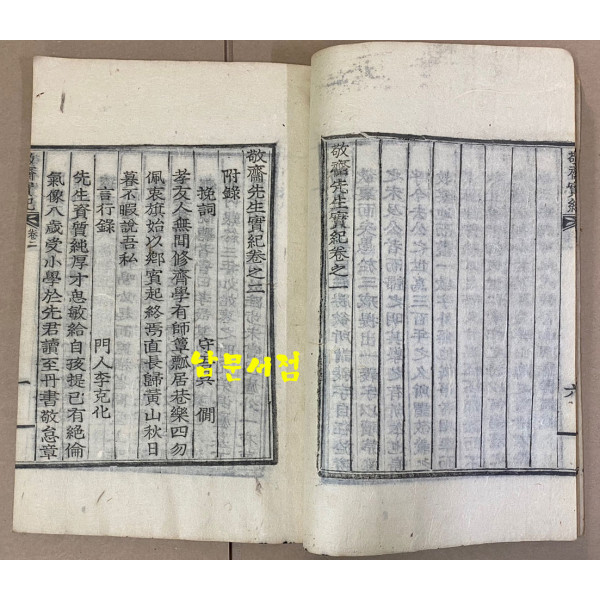 敬齋實紀
敬齋先生實紀卷之一
六
敬齋先生實紀卷之二
附錄
挽詞
守 吳 僩
孝友人無間修齊學有師章瓢居巷樂四勿
佩衷旗始以鄕賓起終焉直長歸黃山秋日
暮不暇說吾私
言行錄
門人李克化
先生資質純厚才思敏給自孩提已有絶倫
氣像八歲受小學於先君讀至丹書敬怠章
敬齋實紀
卷二
一
남문서점